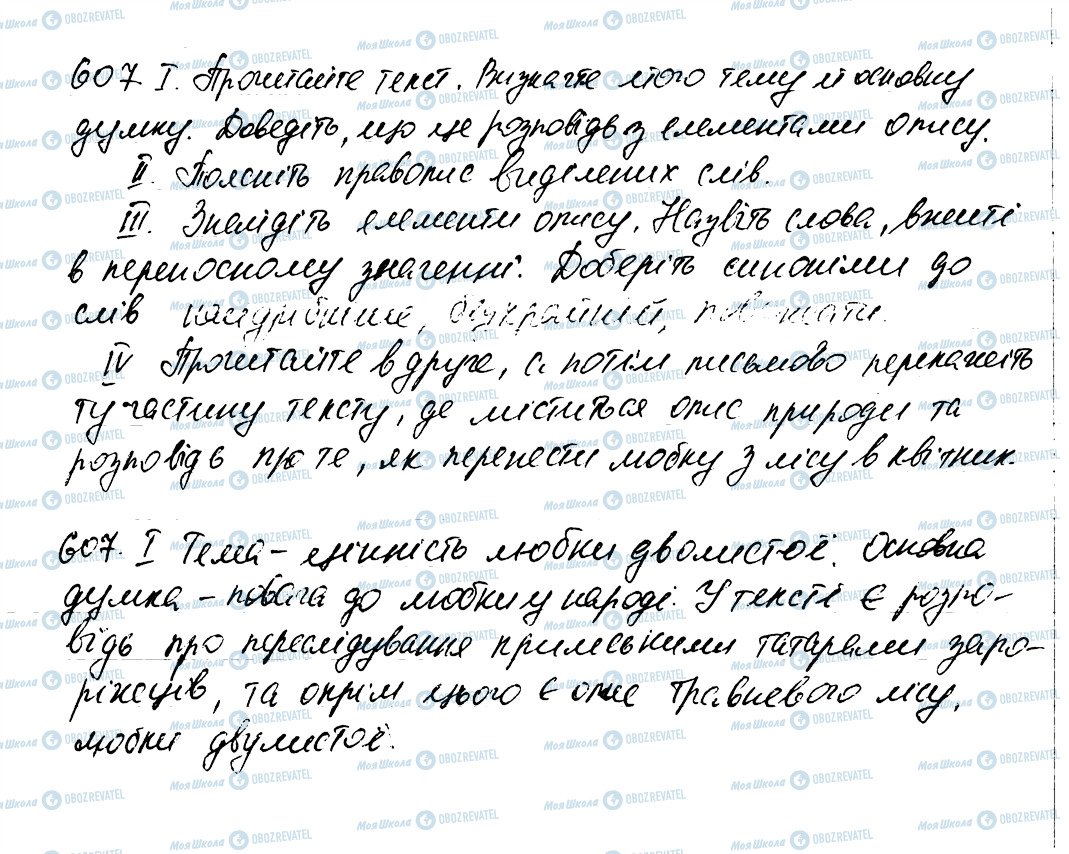 607 I. Прочитайте текст. Визначте його тему й основну
думку. Доведіть, що це розповідь з елементами опису.
II. Поясніть правопис виділених слів.
III. Знайдіть елементи опису. Назвіть слова, вжиті
в переносному значенні. Доберіть синоніми до
слів найдрібніше, безкрайній,
IV Прочитайте вдруге, а потім письмово перекажіть
ту частину тексту, де міститься опис природи та
розповідь про те, як перенести любку з лісу в квітник.
607. I Тема – цінність любки дволистої. Основна
думка – повага до любки у народі. У тексті є розпо-
відь про переслідування кримськими татарами запо-
ріжців, та окрім цього є опис травневого лісу,
любки двулистої.